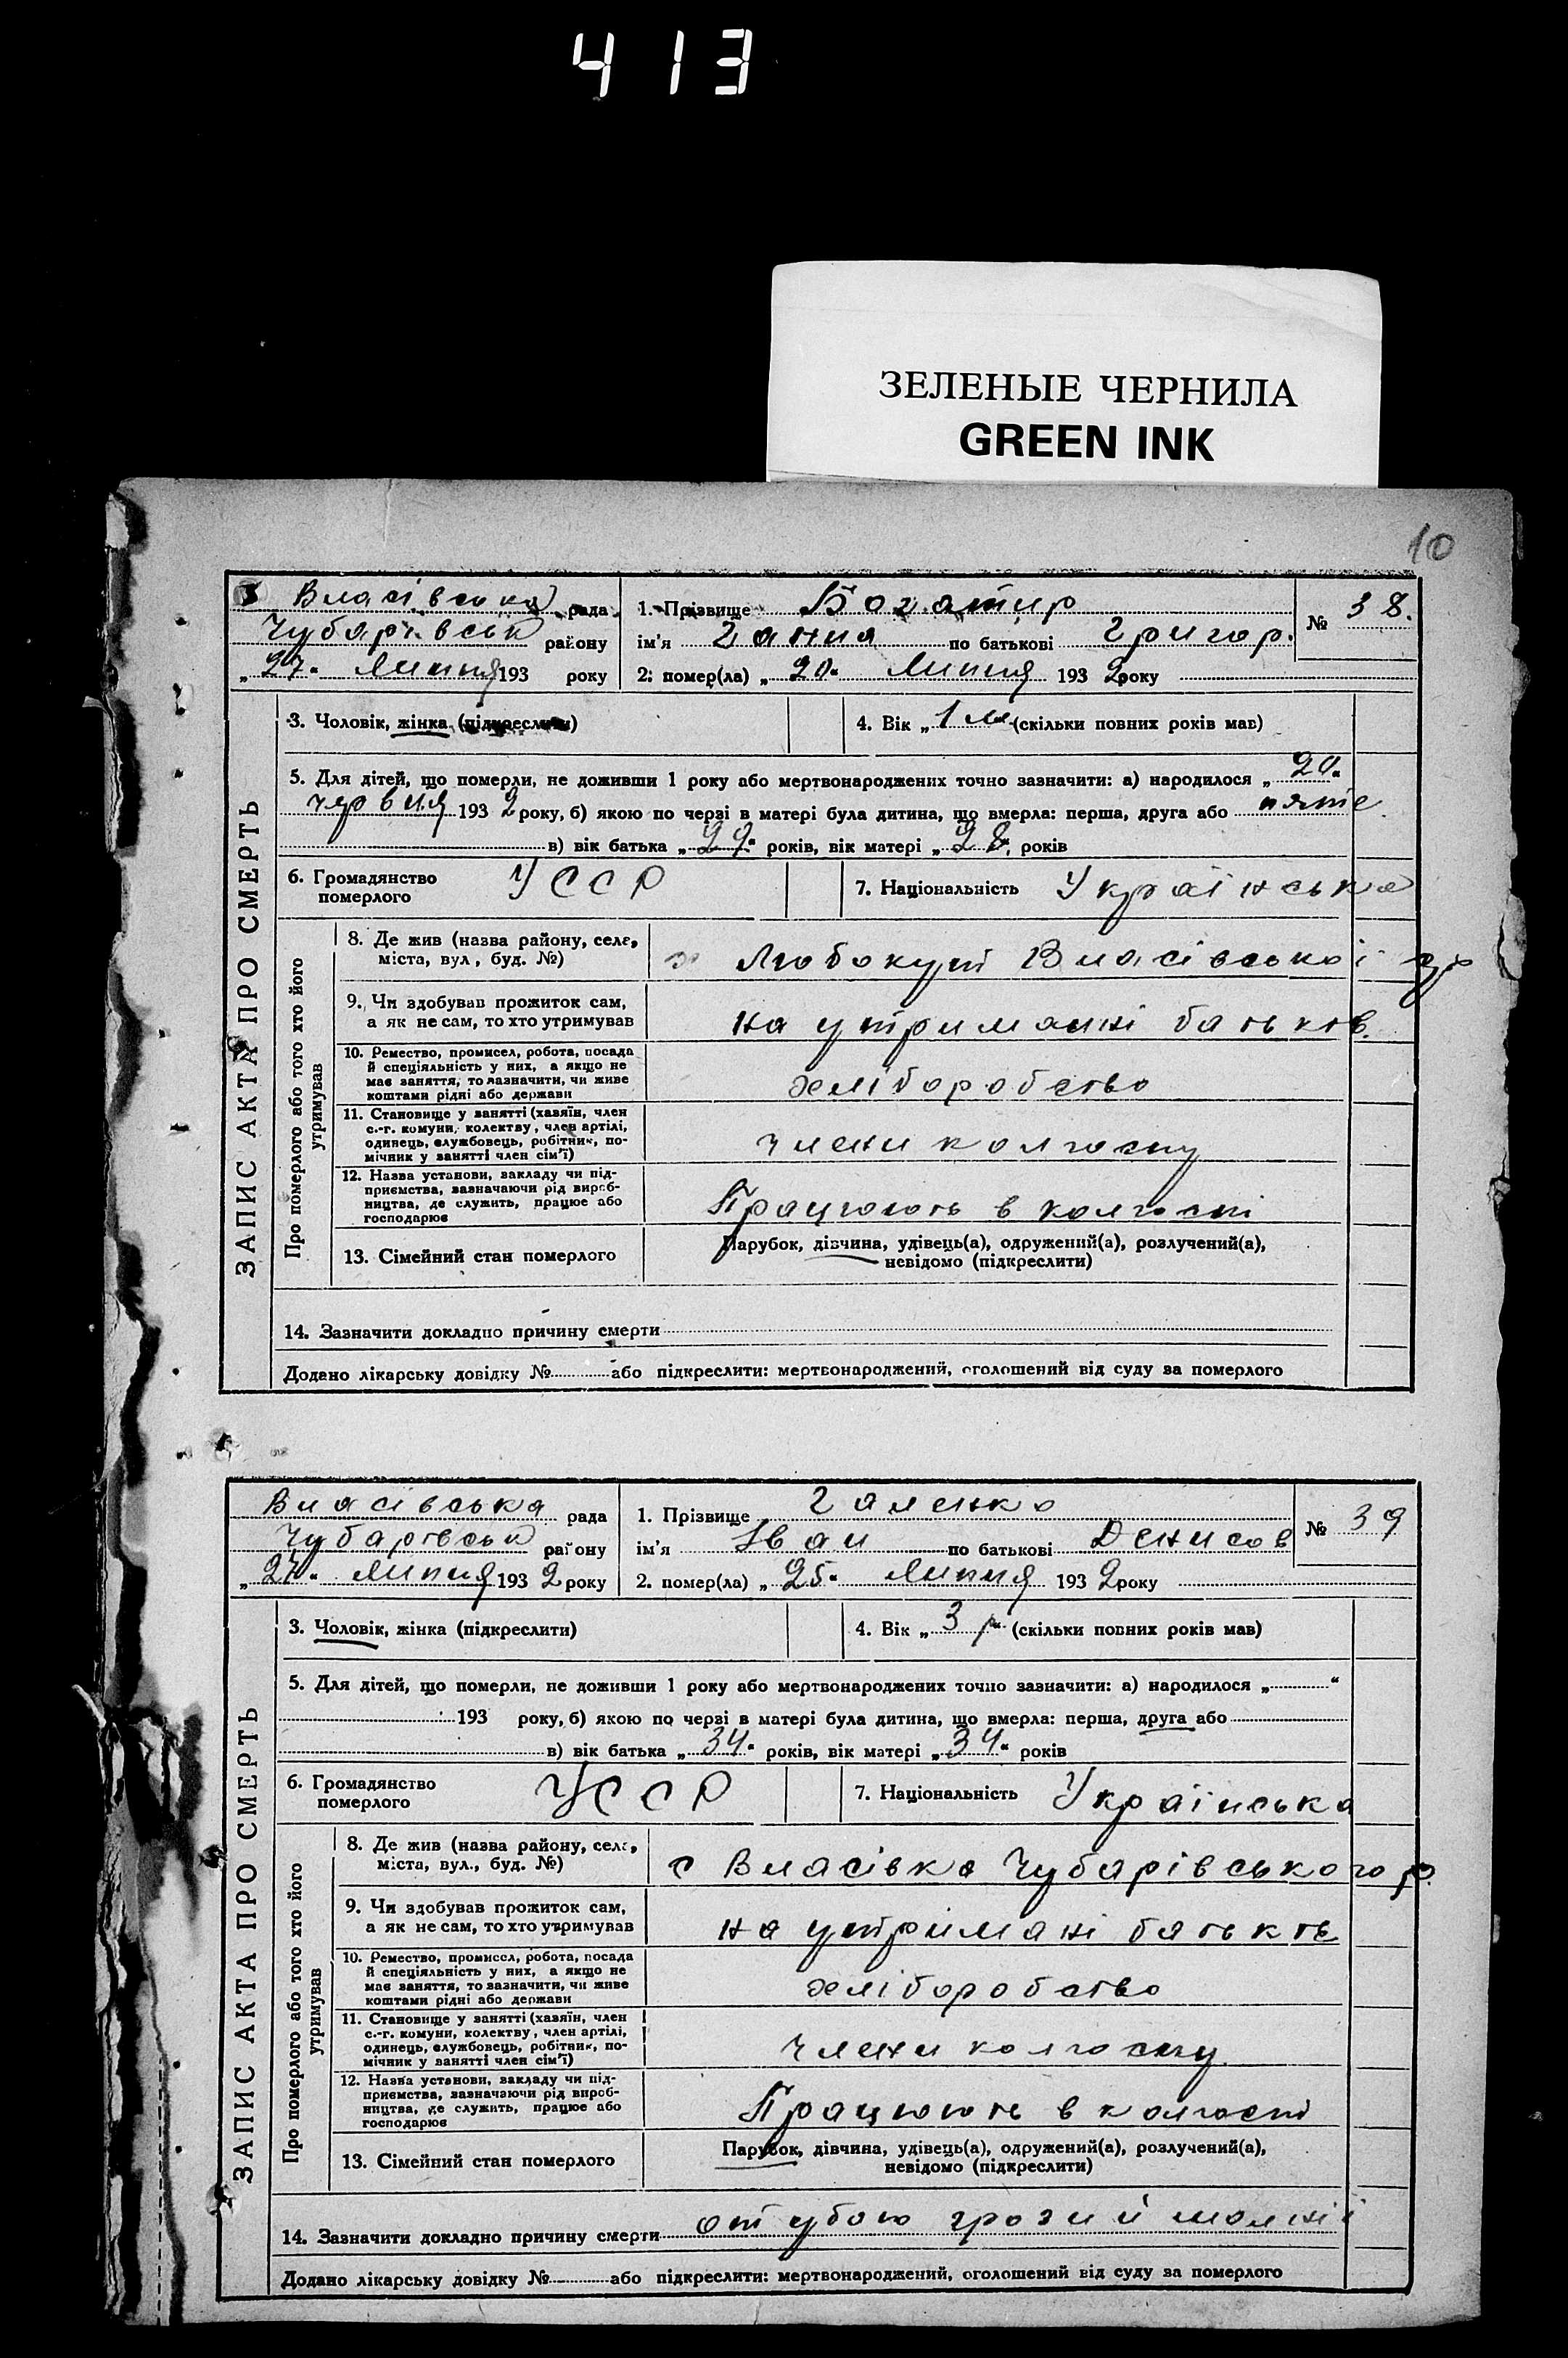 413
ЗЕЛЕНЫЕ ЧЕРНИЛА
GREEN INK
10
Власівська рада
Чубарівськ району
„27“ Липня 193 року
1. Прізвище Богатир
ім'я Ганна по батькові Григор.
2. помер(ла) „20“ Липня 1932 року
№ 38.
ЗАПИС АКТА ПРО СМЕРТЬ
3. Чоловік, жінка (підкреслити)
4. Вік „1 м“ (скільки повних років мав)
5. Для дітей, що померли, не доживши 1 року або мертвонароджених точно зазначити: а) народилося „20“
червня 1932 року, б) якою по черзі в матері була дитина, що вмерла: перша, друга або пяте
в) вік батька „29“ років, вік матері „28“ років
6. Громадянство
померлого
УССР
7. Національність Українська
Про померлого або того хто його
утримував
8. Де жив (назва району, села,
міста, вул., буд. №)
х Любокут Власівської с/р
9. Чи здобував прожиток сам,
а як не сам, то хто утримував
на утриманні батьків.
10. Ремество, промисел, робота, посада
й спеціяльність у них, а якщо не
має заняття, то зазначити, чи живе
коштами рідні або держави
хліборобство
11. Становище у занятті (хазяїн, член
с.-г. комуни, колективу, член артілі,
одинець, службовець, робітник, по-
мічник у занятті член сім'ї)
члени колгоспу
12. Назва установи, закладу чи під-
приємства, зазначаючи рід вироб-
ництва, де служить, працює або
господарює
Працюють в колгоспі
13. Сімейний стан померлого
Парубок, дівчина, удівець(а), одружений(а), розлучений(а),
невідомо (підкреслити)
14. Зазначити докладно причину смерти
Додано лікарську довідку № або підкреслити: мертвонароджений, оголошений від суду за померлого
Власівська рада
Чубарівськ району
„27“ Липня 1932 року
1. Прізвище Галенко
ім'я Іван по батькові Денисов
2. помер(ла) „25“ Липня 1932 року
№ 39
ЗАПИС АКТА ПРО СМЕРТЬ
3. Чоловік, жінка (підкреслити)
4. Вік „3 р“ (скільки повних років мав)
5. Для дітей, що померли, не доживши 1 року або мертвонароджених точно зазначити: а) народилося „ “
193 року, б) якою по черзі в матері була дитина, що вмерла: перша, друга або
в) вік батька „34“ років, вік матері „34“ років
6. Громадянство
померлого
УССР
7. Національність Українська
Про померлого або того хто його
утримував
8. Де жив (назва району, села,
міста, вул., буд. №)
с Власівка Чубарівського р.
9. Чи здобував прожиток сам,
а як не сам, то хто утримував
на утримані батьків
10. Ремество, промисел, робота, посада
й спеціяльність у них, а якщо не
має заняття, то зазначити, чи живе
коштами рідні або держави
хліборобство
11. Становище у занятті (хазяїн, член
с.-г. комуни, колективу, член артілі,
одинець, службовець, робітник, по-
мічник у занятті член сім'ї)
члени колгоспу
12. Назва установи, закладу чи під-
приємства, зазначаючи рід вироб-
ництва, де служить, працює або
господарює
Працюють в колгоспі
13. Сімейний стан померлого
Парубок, дівчина, удівець(а), одружений(а), розлучений(а),
невідомо (підкреслити)
14. Зазначити докладно причину смерти от убою грози й молнії
Додано лікарську довідку № або підкреслити: мертвонароджений, оголошений від суду за померлого